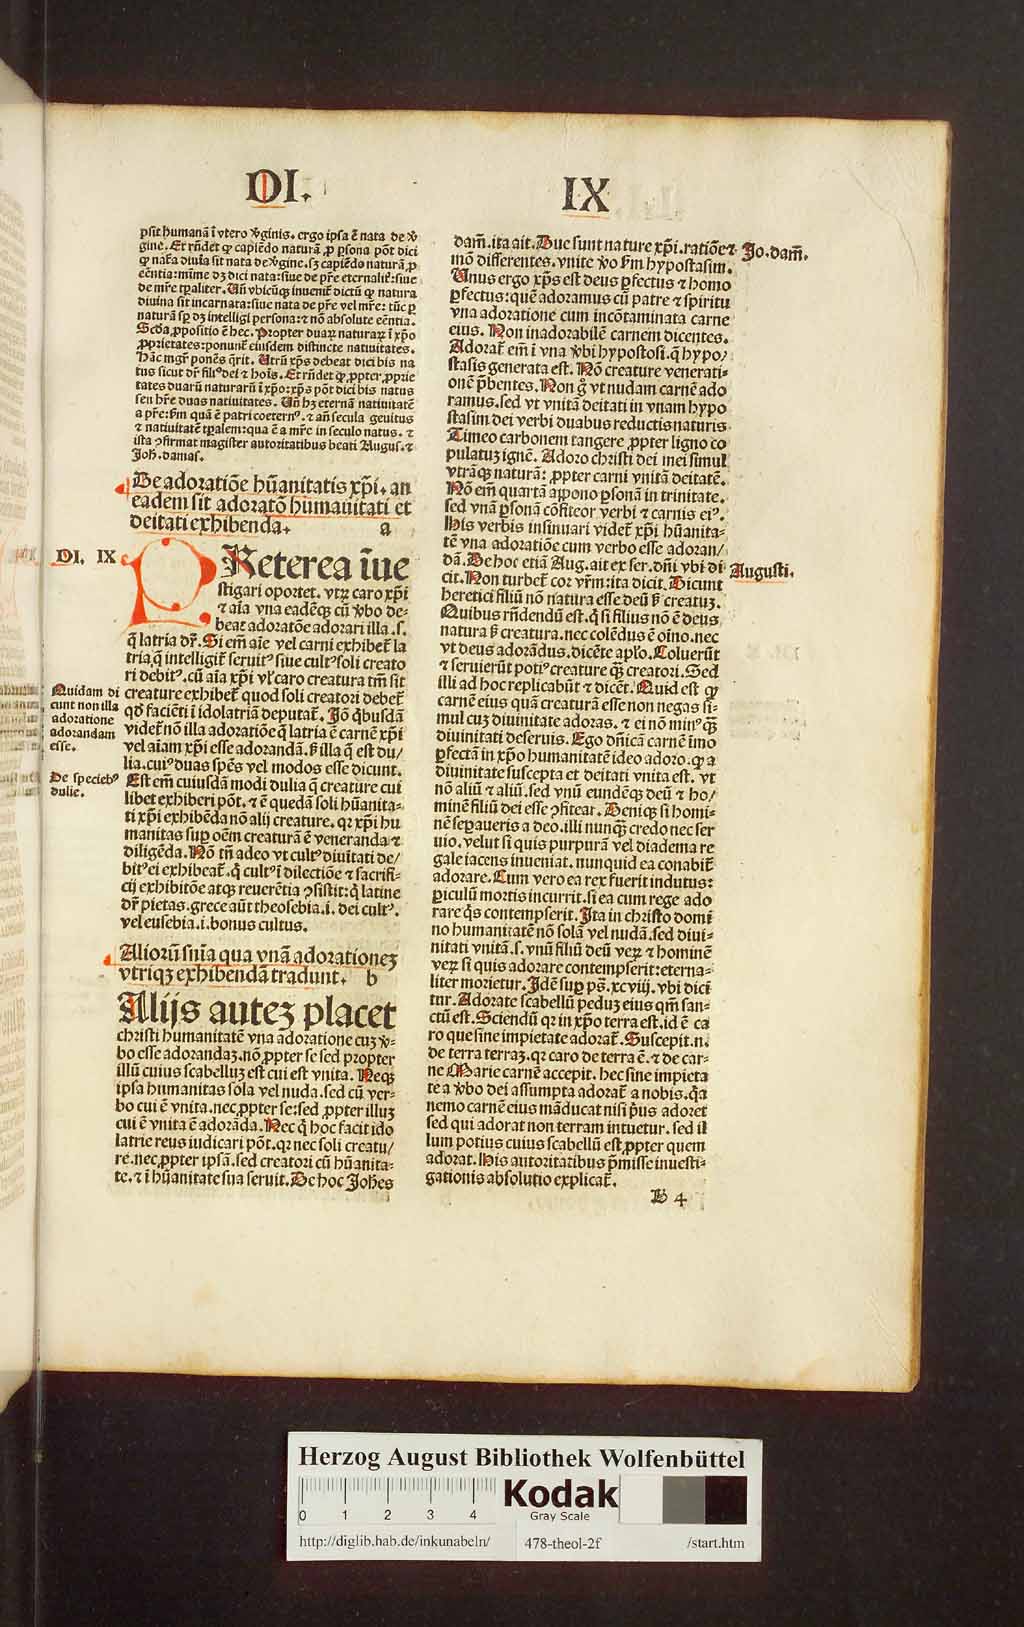 DI. IX
psit humanā ī vtero v̄ginis. ergo ipsa ē nata de v̄
gine. Et rn̄det ꝙ capiēdo naturā ꝓ ꝑsona pōt dici
ꝙ nat̄a diuīa sit nata de v̄gine. sꝫ capiēdo naturā ꝓ
eēntia: mīme dꝫ dici nata: siue de pr̄e eternalit̄: siue
de mr̄e tꝑaliter. Vn̄ vbicūqꝫ inuenit̄ dictū ꝙ natura
diuina sit incarnata: siue nata de pr̄e vel mr̄e: tūc ꝑ
naturā sꝑ dꝫ intelligi persona: ⁊ nō absolute eēntia.
Scd̄a ꝓpositio ē hec. Propter duaꝝ naturaꝝ ī xp̄o
ꝓprietates: ponunt̄ eiusdem distincte natiuitates.
Hāc mgr̄ ponēs q̄rit. Utrū xp̄s debeat dici bis na
tus sicut dr̄ filiꝰ dei ⁊ hoīs. Et rn̄det ꝙ ꝓpter ꝓprie
tates duarū naturarū ī xp̄o: xp̄s pōt dici bis natus
seu hr̄e duas natiuitates. Un̄ hꝫ eternā natiuitatē
a pr̄e: ẜm quā ē patri coeternꝰ. ⁊ an̄ secula genitus
⁊ natiuitatē tꝑalem: qua ē a mr̄e in seculo natus. ⁊
ista ↄfirmat magister autoritatibus beati Augus. ⁊
Joh̄. damas.
De adoratiōe hūanitatis xp̄i. an
eadem sit adoratō humanitati et
deitati exhibenda. a
DI. IX
PReterea īue
stigari oportet. vtꝝ caro xp̄i
⁊ aīa vna eadēqꝫ cū v̄bo de-
beat adoratōe adorari illa. s.
q̄ latria dr̄. Si em̄ aīe vel carni exhibet̄ la
tria. q̄ intelligit̄ seruitꝰ siue cultꝰ soli creato
ri debitꝰ. cū aīa xp̄i vl̓ caro creatura tm̄ sit
creature exhibet̄ quod soli creatori debet̄
qd̄ faciēti ī idolatriā deputat̄. Jō q̇busdā
videt̄ nō illa adoratiōe q̄ latria ē carnē xp̄i
vel aīam xp̄i esse adorandā. ẜ illa q̄ est du/
lia. cuiꝰ duas spēs vel modos esse dicunt.
Quidam di
cunt non illa
adoratione
adorandam
esse.
De speciebꝰ
dulie.
Est em̄ cuiusdā modi dulia q̄ creature cui
libet exhiberi pōt. ⁊ ē quedā soli hūanita-
ti xp̄i exhibēda nō alij creature. qꝛ xp̄i hu
manitas suꝑ oēm creaturā ē veneranda ⁊
diligēda. Nō tn̄ adeo vt cultꝰ diuītati de/
bitꝰ ei exhibeat̄. q̄ cultꝰ ī dilectiōe ⁊ sacrifi-
cij exhibitōe atqꝫ reuerētia ↄsistit: q̄ latine
dr̄ pietas. grece aūt theosebia. i. dei cultꝰ.
vel eusebia. i. bonus cultus.
Aliorū sn̄ia qua vnā adorationeꝫ
vtriqꝫ exhibendā tradunt. b
Alijs auteꝫ placet
christi humanitatē vna adoratione cuꝫ v̄-
bo esse adorandaꝫ. nō ꝓpter se sed propter
illū cuius scabelluꝫ est cui est vnita. Neqꝫ
ipsa humanitas sola vel nuda. sed cū ver-
bo cui ē vnita. nec ꝓpter se: sed ꝓpter illuꝫ
cui ē vnita ē adorāda. Nec q̇ hoc facit ido
latrie reus iudicari pōt. qꝛ nec soli creatu/
re. nec ꝓpter ipsā. sed creatori cū hūanita-
te. ⁊ ī hūanitate sua seruit. De hoc Joh̄es
dam̄. ita ait. Due sunt nature xp̄i. ratiōe ⁊
mō differentes. vnite v̄o ẜm hypostasim.
Jo. dam̄.
Unus ergo xp̄s est deus ꝑfectus ⁊ homo
ꝑfectus: quē adoramus cū patre ⁊ spiritu
vna adoratione cum incōtaminata carne
eius. Non inadorabilē carnem dicentes.
Adorat̄ em̄ ī vna v̄bi hypostosi. q̄ hypo/
stasis generata est. Nō creature venerati-
onē p̄bentes. Non g̊ vt nudam carnē ado
ramus. sed vt vnitā deitati in vnam hypo
stasim dei verbi duabus reductis naturis.
Timeo carbonem tangere ꝓpter ligno co
pulatuꝫ ignē. Adoro christi dei mei simul
vtrāqꝫ naturā: ꝓpter carni vnitā deitatē.
Nō em̄ quartā appono ꝑsonā in trinitate.
sed vnā ꝑsonā cōfiteor verbi ⁊ carnis eiꝰ.
His verbis insinuari videt̄ xp̄i hūanita-
tē vna adoratiōe cum verbo esse adoran/
dā. De hoc etiā Aug. ait ex ser. dn̄i vbi di
cit. Non turbet̄ cor vr̄m: ita dicit. Dicunt
Augusti.
heretici filiū nō natura esse deū ẜ creatuꝫ.
Quibus rn̄dendū est. q̄ si filius nō ē deus
natura ẜ creatura. nec colēdus ē oīno. nec
vt deus adorādus. dicēte apl̓o. Coluerūt
⁊ seruierūt potiꝰ creature qꝫ creatori. Sed
illi ad hoc replicabūt ⁊ dicēt. Quid est ꝙ
carnē eius quā creaturā esse non negas si-
mul cuꝫ diuinitate adoras. ⁊ ei nō minꝰ qꝫ
diuinitati deseruis. Ego dn̄icā carnē imo
ꝑfectā in xp̄o humanitatē ideo adoro. ꝙ a
diuinitate suscepta et deitati vnita est. vt
nō aliū ⁊ aliū. sed vnū eundēqꝫ deū ⁊ ho/
minē filiū dei esse ↄfitear. Deniqꝫ si homi-
nē seꝑaueris a deo. illi nunqꝫ credo nec ser
uio. velut si quis purpurā vel diadema re
gale iacens inueniat. nunquid ea conabit̄
adorare. Cum vero ea rex fuerit indutus:
ꝑiculū mortis incurrit. si ea cum rege ado
rare q̇s contempserit. Ita in christo domi
no humanitatē nō solā vel nudā. sed diui-
nitati vnitā. s. vnū filiū deū veꝝ ⁊ hominē
veꝝ si quis adorare contempserit: eterna-
liter morietur. Idē suꝑ ps̄. xcviij. vbi dici
tur. Adorate scabellū peduꝫ eius qm̄ san-
ctū est. Sciendū qꝛ in xp̄o terra est. id ē ca
ro que sine impietate adorat̄. Suscepit. n.
de terra terraꝫ. qꝛ caro de terra ē. ⁊ de car-
ne Marie carnē accepit. hec sine impieta
te a v̄bo dei assumpta adorat̄ a nobis. q̇a
nemo carnē eius māducat nisi p̄us adoret
sed qui adorat non terram intuetur. sed il
lum potius cuius scabellū est ꝓpter quem
adorat. His autoritatibus p̄misse inuesti-
gationis absolutio explicat̄.
B 4
Herzog August Bibliothek Wolfenbüttel
0 1 2 3 4
Kodak
Gray Scale
http://diglib.hab.de/inkunabeln/ 478-theol-2f /start.htm